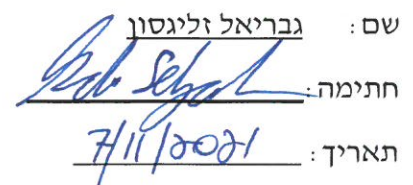 שם : גבריאל זליגסון
חתימה:
תאריך : 7/11/2021